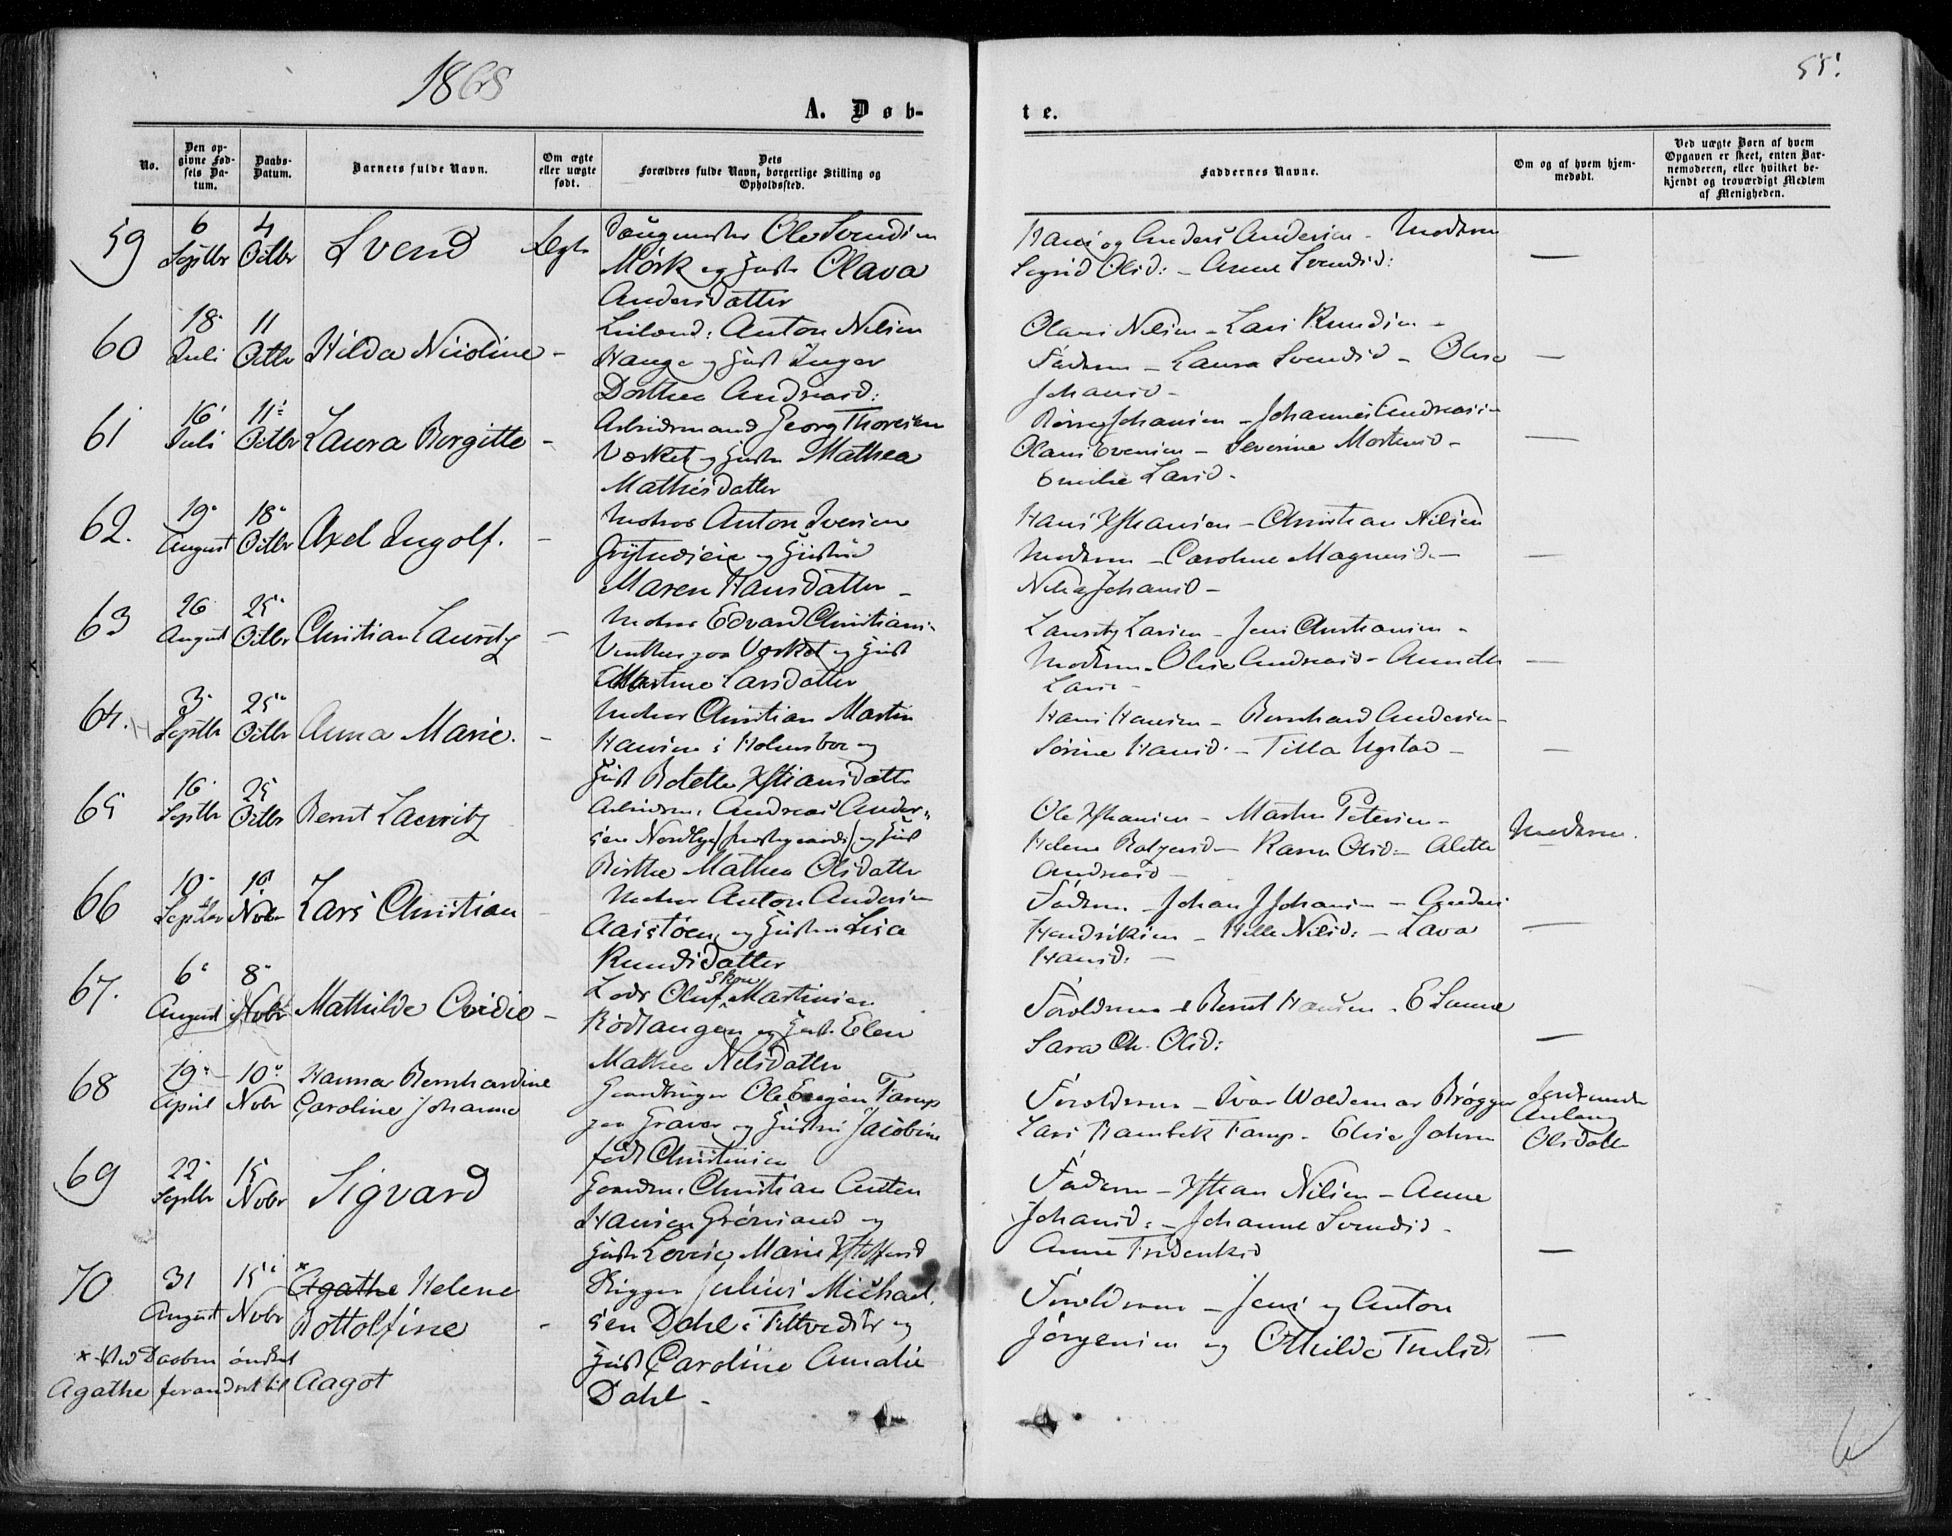 1868
55.
A. Døb-
te.
No.
Den op-
givne Fød-
sels Da-
tum.
Daabs-
Datum.
Barnets fulde Navn.
Om ægte
eller uægte
født.
Dets
Forældres fulde Navn, borgerlige Stilling og
Opholdssted.
Faddernes Navne.
Om og af hvem hjem-
medøbt.
Ved uægte Børn af hvem
Opgaven er skeet, enten Bar-
nemoderen, eller hvilket be-
kjendt og troværdigt Medlem
af Menigheden.
59
6
Septbr
4
Octbr
Svend
Ægte
Ole Svendsen
Mörk og Hustr Olava
Andersdatter
Hans og Anders Andersen - Moderen
Sigrid Olsd: - Anne Svendsd:
—
60
18
Juli
11
Octbr
Hilda Nicoline -
Leilænd: Anton Nilsen
Hauge og Hust Inger
Dorthea Andreasd:
Olaus Nilsen - Lars Knudsen -
Faderen - Laura Svendsd - Olise
Johansd -
—
61
16
Juli
11
Octbr
Laura Borgitte -
Arbeidsmand Georg Thoresen
Værket og Hustr Mathea
Mathisdatter
Johansen - Johannes Andreass -
Olaus Evensen - Severine Mortensd -
Emilie Larsd -
—
62.
19
August
18
Octbr
Axel Ingolf. -
Matros Anton Iversen
og Hustru
Maren Hansdatter -
Hans Xstiansen - Christian Nilsen
Moderen - Caroline Magnusd -
Johansd -
—
63
26
August
25
Octbr
Christian Lauritz -
Matros Edvard Christians-
paa Værket og Hust
Larsdatter
Lauritz Larsen - Jens Christiansen -
Moderen - Olise Andreasd - Annette
Larsd -
—
64.
3
Septbr
25
Octbr
Anna Marie. -
Matros Christian Martin
Hansen i Holmsboe og
Hust Bolette Xstiansdatter
Hans Hansen - Bernhard Andersen -
Sörine Hansd. - Tilla Ugstad -
—
65
16
Septbr
25
Octbr
Bernt Lauritz
Arbeidsm: Andreas Ander-
sen Nordbye og Hust
Birthe Mathea Olsdatter
Ole Xstiansen - Martin Petersen -
Helene - Karen Olsd - Alette
Andreasd -
Moderen.
66
10
Septbr
10
Nobr
Lars Christian
Matros Anton Andersen
og Hustru Lisa
Knudsdatter
Faderen - Johan J Johansen - Anders
Hendriksen - Helle Nilsd: - Lava
Hansd: -
—
67.
6
August
8
Nobr
Mathilde Ovidie -
Lods Oluf Martinsen
Rödtangen og Hust. Elen
Mathea Nilsdatter
Forældrene - Bernt Hansen - E Sanne
Sara Ch. Olsd:
—
68
19
April
10
Nobr
Hanna Bernhardine
Caroline Johanne
Gaardbruger Ole Tamp
paa Graver og Hustru Jacobine
født Christensen
Forældrene - Ivar Woldemar Brøgger
Lars Rambek Tamp - Elise Johnsn
Olsdatter
69
22
Septbr
15
Nobr
Sigvard
Gaardm: Christian Anton
Hansen Grönsand og
Hustr Lovise Marie Xstoffersd
Faderen - Xstian Nilsen - Anne
Johansd: - Johanne Svendsd -
Anne Fredriksd
—
70
31
August
15
Nobr
* Agathe Helene
Bottolfine -
Skigger Julius Michael-
sen Dahl i Filtvedt og
Hust Caroline Amalie
Dahl -
Forældrene - Jens og Anton
Jörgensen og Othilde
—
* Ved Daaben ønsket
Agathe forandret til Aagot